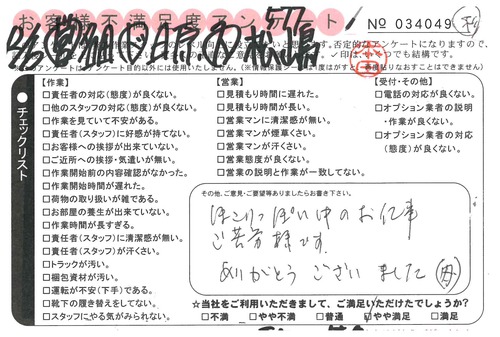 お客様不満足度アンケート
№ 034049
チェックリスト
【作業】
□責任者の対応(態度)が良くない。
□他のスタッフの対応(態度)が良くない。
□作業を見ていて不安がある。
□責任者(スタッフ)に好感が持てない。
□お客様への挨拶が出来ていない。
□ご近所への挨拶・気遣いが無い。
□作業開始前の内容確認がなかった。
□作業開始時間が遅れた。
□荷物の取り扱いが雑である。
□お部屋の養生が出来ていない。
□作業時間が長すぎる。
□責任者(スタッフ)に清潔感が無い。
□責任者(スタッフ)が汗くさい。
□トラックが汚い。
□梱包資材が汚い。
□運転が不安(下手)である。
□靴下の履き替えをしてない。
□スタッフにやる気がみられない。
【営業】
□見積もり時間に遅れた。
□見積もり時間が長い。
□営業マンに清潔感が無い。
□営業マンが煙草くさい。
□営業マンが汗くさい。
□営業態度が良くない。
□営業の説明と作業が一致してない。
【受付・その他】
□電話の対応が良くない。
□オプション業者の説明
・作業が良くない。
□オプション業者の対応
(態度)が良くない。
その他、ご意見・ご要望等ありましたらお書き下さい。
ほこりっぽい中のお仕事
ご苦労様です。
ありがとうございました
☆当社をご利用いただきまして、ご満足いただけたでしょうか?
□不満 □やや不満 □普通 □やや満足 □満足